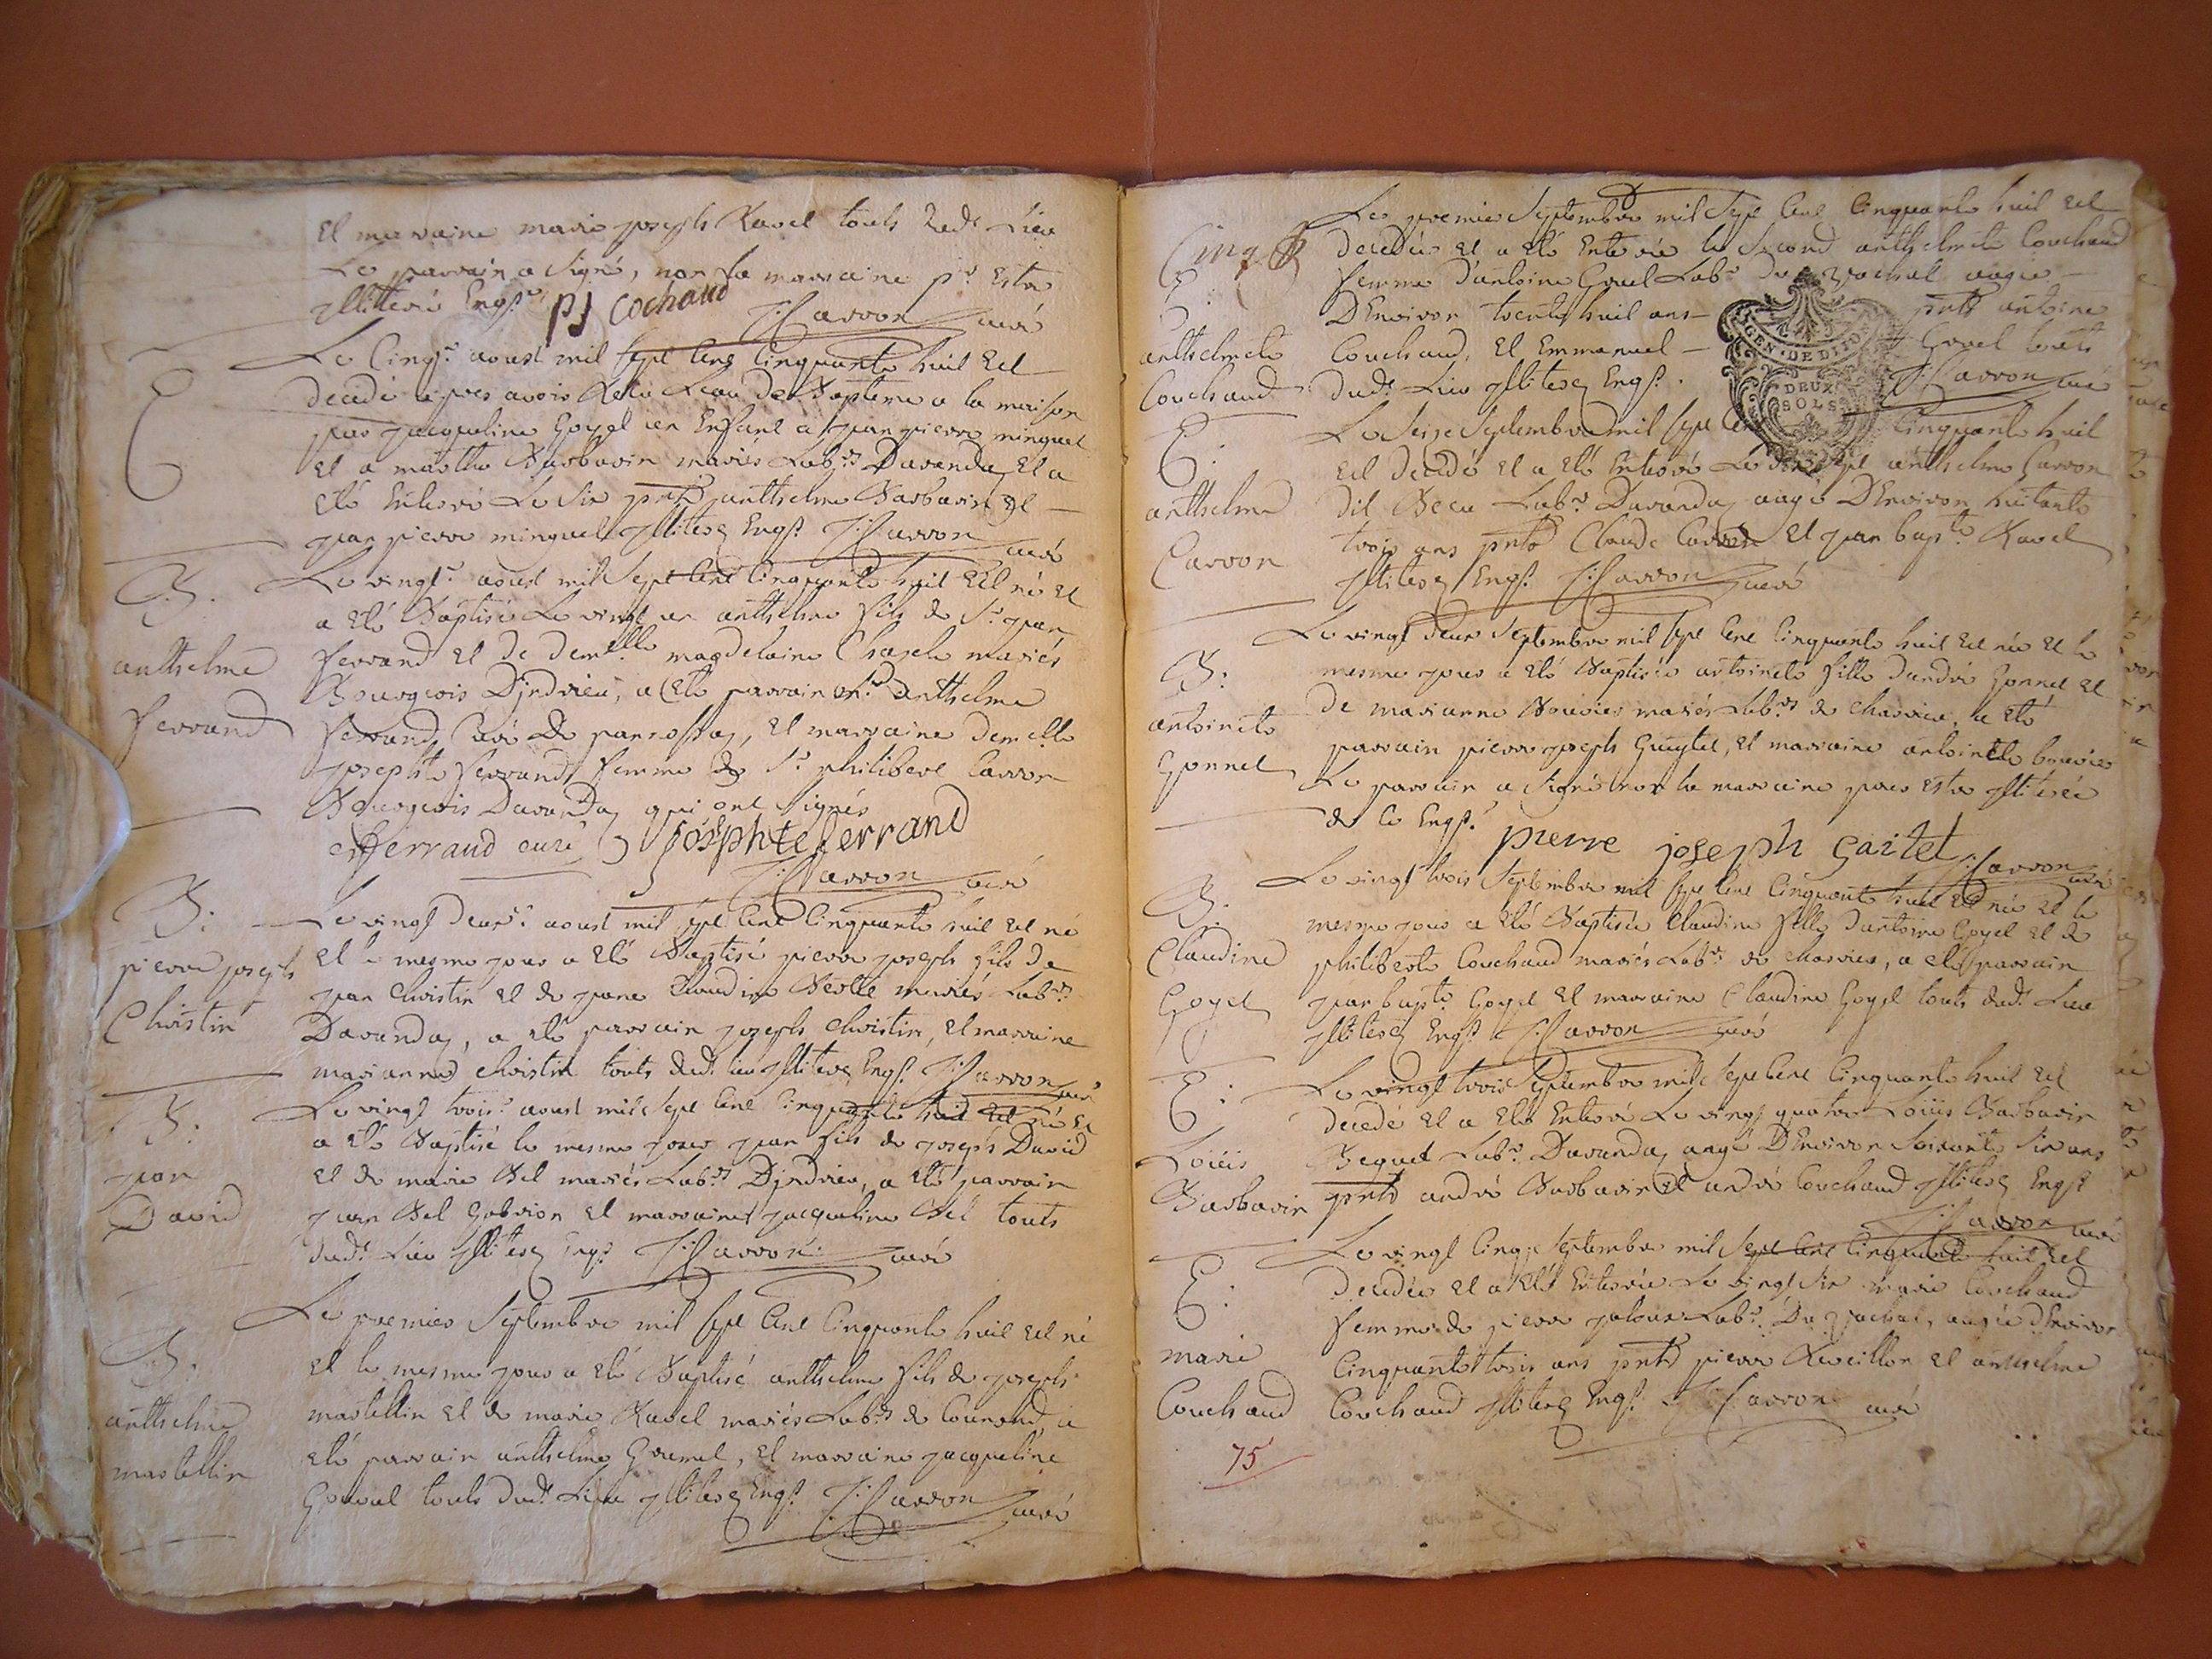 et marraine marie joseph Ravel touts dudt Lieu
Le parrain a signé, non la marraine pr estre
illitteré Enqse PJ cochaud J:Carron curé
E Le Cinqe aoust mil sept cent Cinquante huit Est
decedé apres avoir Recu L'eau de Bapteme a la maison
par jacqueline Goyet un Enfant a jean pierre minguet
et a marthe Barbarin mariés Labrs Davanda, et a
eté Enterré Le six pnts anthelme Barbarin et
jean pierre minguet illiterés Enqs J:Carron curé
B. Le vingte aoust mil sept cent Cinquante huit Est né et
a eté Baptisé Le vingt un anthelme fils de Sr jean
anthelme ferrand et de demlle magdelaine Chapelu mariés
ferrand Bourgeois D'jndrieu, a eté parrain mre anthelme
ferrand Curé de parnossas, et marraine demelle
josephte ferrand femme de Sr philibert Carron
Bourgeois Davanda, qui ont signés
ferrand curé josphte ferrand
J:Carron curé
B: Le vingt deuxe aoust mil sept cent Cinquante huit est né
pierre joseph et le mesme jour a eté Baptisé pierre joseph fils de
Christin jean Christin et de jeane Claudine mariés Labrs
Davanda, a eté parrain joseph Christin, et marraine
marianne Christin touts dudt lieu illiterés Enqs J:Carron curé
B: Le vingt troise aoust mil sept cent Cinquante huit est né et
jean a eté Baptisé le mesme jour jean fils de joseph David
David et de marie Bel mariés Labrs D'jndrieu, a eté parrain
jean Bel Gabrion et marraine jacqueline Bel touts
dudt Lieu illiterés Enqs J:Carron curé
Le premier Septembre mil sept cent Cinquante huit est né
B. et le mesme jour a eté Baptisé anthelme fils de joseph
anthelme martellin et de marie Ravel mariés Labrs de Courand a
martellin eté parrain anthelme Gramel, et marraine jacqueline
touts dudt Lieu illiterés Enqs J:Carron curé
Le premier Septembre mil sept cent Cinquante huit est
Cinq decedée et a eté Enterrée le second anthelmete Couchaud
E femme d'antoine Labr du aagée
D'Environ trente huit ans pnts antoine
anthelmete Couchaud, et Emmanuel touts
Couchaud dudt Lieu illiterés Enqs. J:Carron curé
GEN. DE DIJON
DEUX SOLS
E: Le Seize Septembre mil sept cent Cinquante huit
est decedé et a eté Enterré Le dix sept anthelme Carron
anthelme dit Labr Davanda, aagé D'Environ huitante
Carron trois ans pnts Claude Carron et jean bapte Ravel
illiterés Enqs J:Carron curé
Le vingt deux Septembre mil sept cent Cinquante huit est née et le
B: mesme jour a eté Baptisée antoinete fille d'andré Gonnet et
antoinete de marianne Bouvier mariés Labrs de Charvieu, a eté
Gonnet parrain pierre joseph Guaytet, et marraine antoinette bouvier
Le parrain a signé non la marraine pour estre illiterée
de ce Enqs. pierre joseph Gaitet J:Carron curé
Le vingt trois Septembre mil sept cent Cinquante huit Est née et le
B: mesme jour a eté Baptisée Claudine fille d'antoine Goyet et de
Claudine philiberte Couchaud mariés Labrs de Charvieu, a eté parrain
Goyet jean bapte Goyet et marraine Claudine Goyet touts dudt Lieu
illiterés Enqs J:Carron curé
E: Le vingt trois Septembre mil sept cent Cinquante huit est
decedé et a eté Enterré Le vingt quatre Loüis Barbarin
Loüis Bequet Labr Davanda, aagé D'Environ soixante six ans
Barbarin pnts andré Barbarin et andré Couchaud illiterés Enqs
J:Carron curé
Le vingt Cinq Septembre mil sept cent Cinquante huit est
E: decedée et a eté Enterrée Le vingt six marie Couchaud
femme de pierre Labr Du aagée d'Environ
marie Cinquante trois ans pnts pierre Reveillon et anthelme
Couchaud Couchaud illiterés Enqs J:Carron curé
75